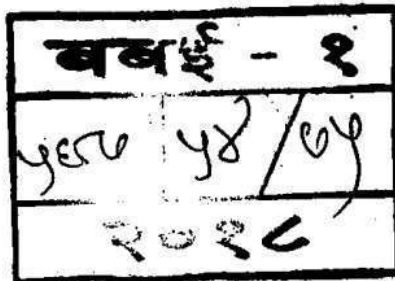 बबई - १
५८८७ ५४/७५
२०१८